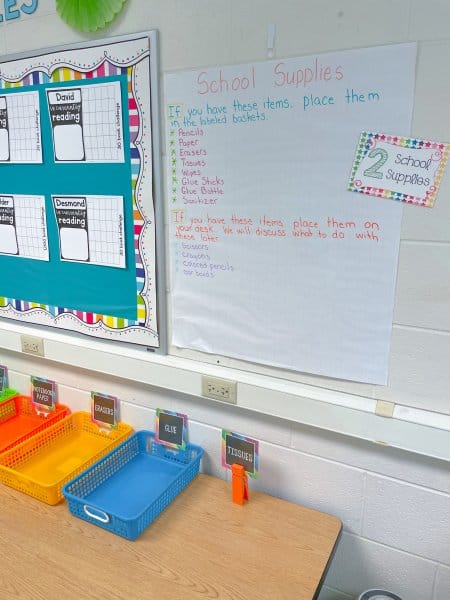 School Supplies
If you have these items, place them
in the labeled baskets.
* Pencils
* Paper
* Erasers
* Tissues
* Wipes
* Glue Sticks
* Glue Bottle
* Sanitizer
If you have these items, place them on
your desk. We will discuss what to do with
these later
scissors
crayons
colored pencils
2
School
Supplies
David
is currently
reading
30 book challenge
Desmond
is currently
reading
30 book challenge
NOTEBOOK
PAPER
ERASERS
GLUE
TISSUES